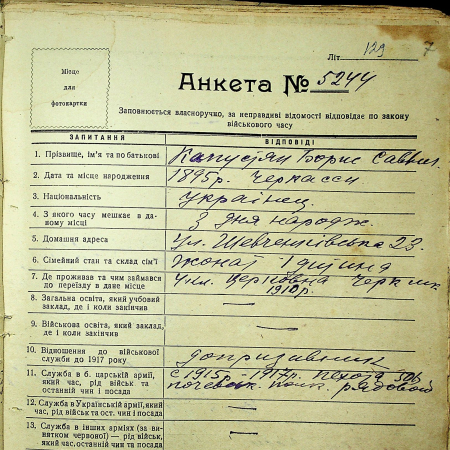 Літ. 129 7
Місце
для
фотокартки
Анкета № 5244
Заповнюється власноручно, за неправдиві відомості відповідає по закону
військового часу
ЗАПИТАННЯ ВІДПОВІДІ
1. Прізвище, ім'я та по батькові Борис Саввич
2. Дата та місце народження 1895 р. Черкасси
3. Національність українец
4. З якого часу мешкає в да-
ному місці З дня народж.
5. Домашня адреса Ул. Шевченківська 23.
6. Сімейний стан та склад сім'ї жонат
7. Де проживав та чим займався
до переїзду в дане місце
8. Загальна освіта, який учбовий
заклад, де і коли закінчив 1910 р.
9. Військова освіта, який заклад,
де і коли закінчив —
10. Відношення до військової
служби до 1917 року допризывник
11. Служба в б. царській армії,
який час, рід військ та
останній чин і посада с 1915 р. - 1917 р. пехота 506
полк. рядовой
12. Служба в Українській армії, який
час, рід військ та ост. чин і посада —
13. Служба в інших арміях (за ви-
нятком червоної) — рід військ,
який час, останній чин та посада —